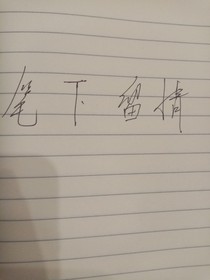 笔下留情